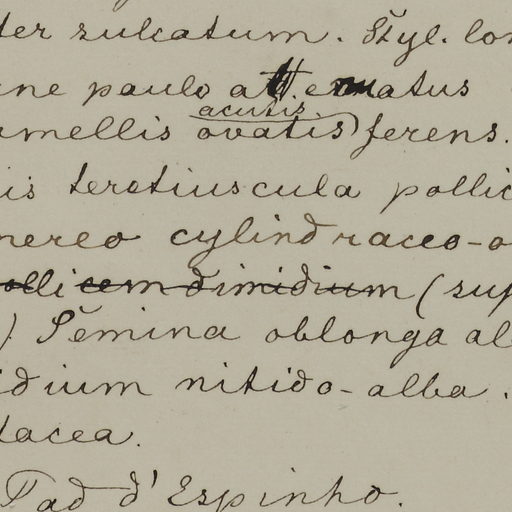 ter sulcatum. Styl. lon
ne paulo attenuatus
acutis.
amellis ovatis) ferens.
is teretiuscula pollic
nereo cylindraceo-o
ollicem dimidium (sup
) Semina oblonga al
idium nitido-alba.
tacea.
Pad d'Espinho.